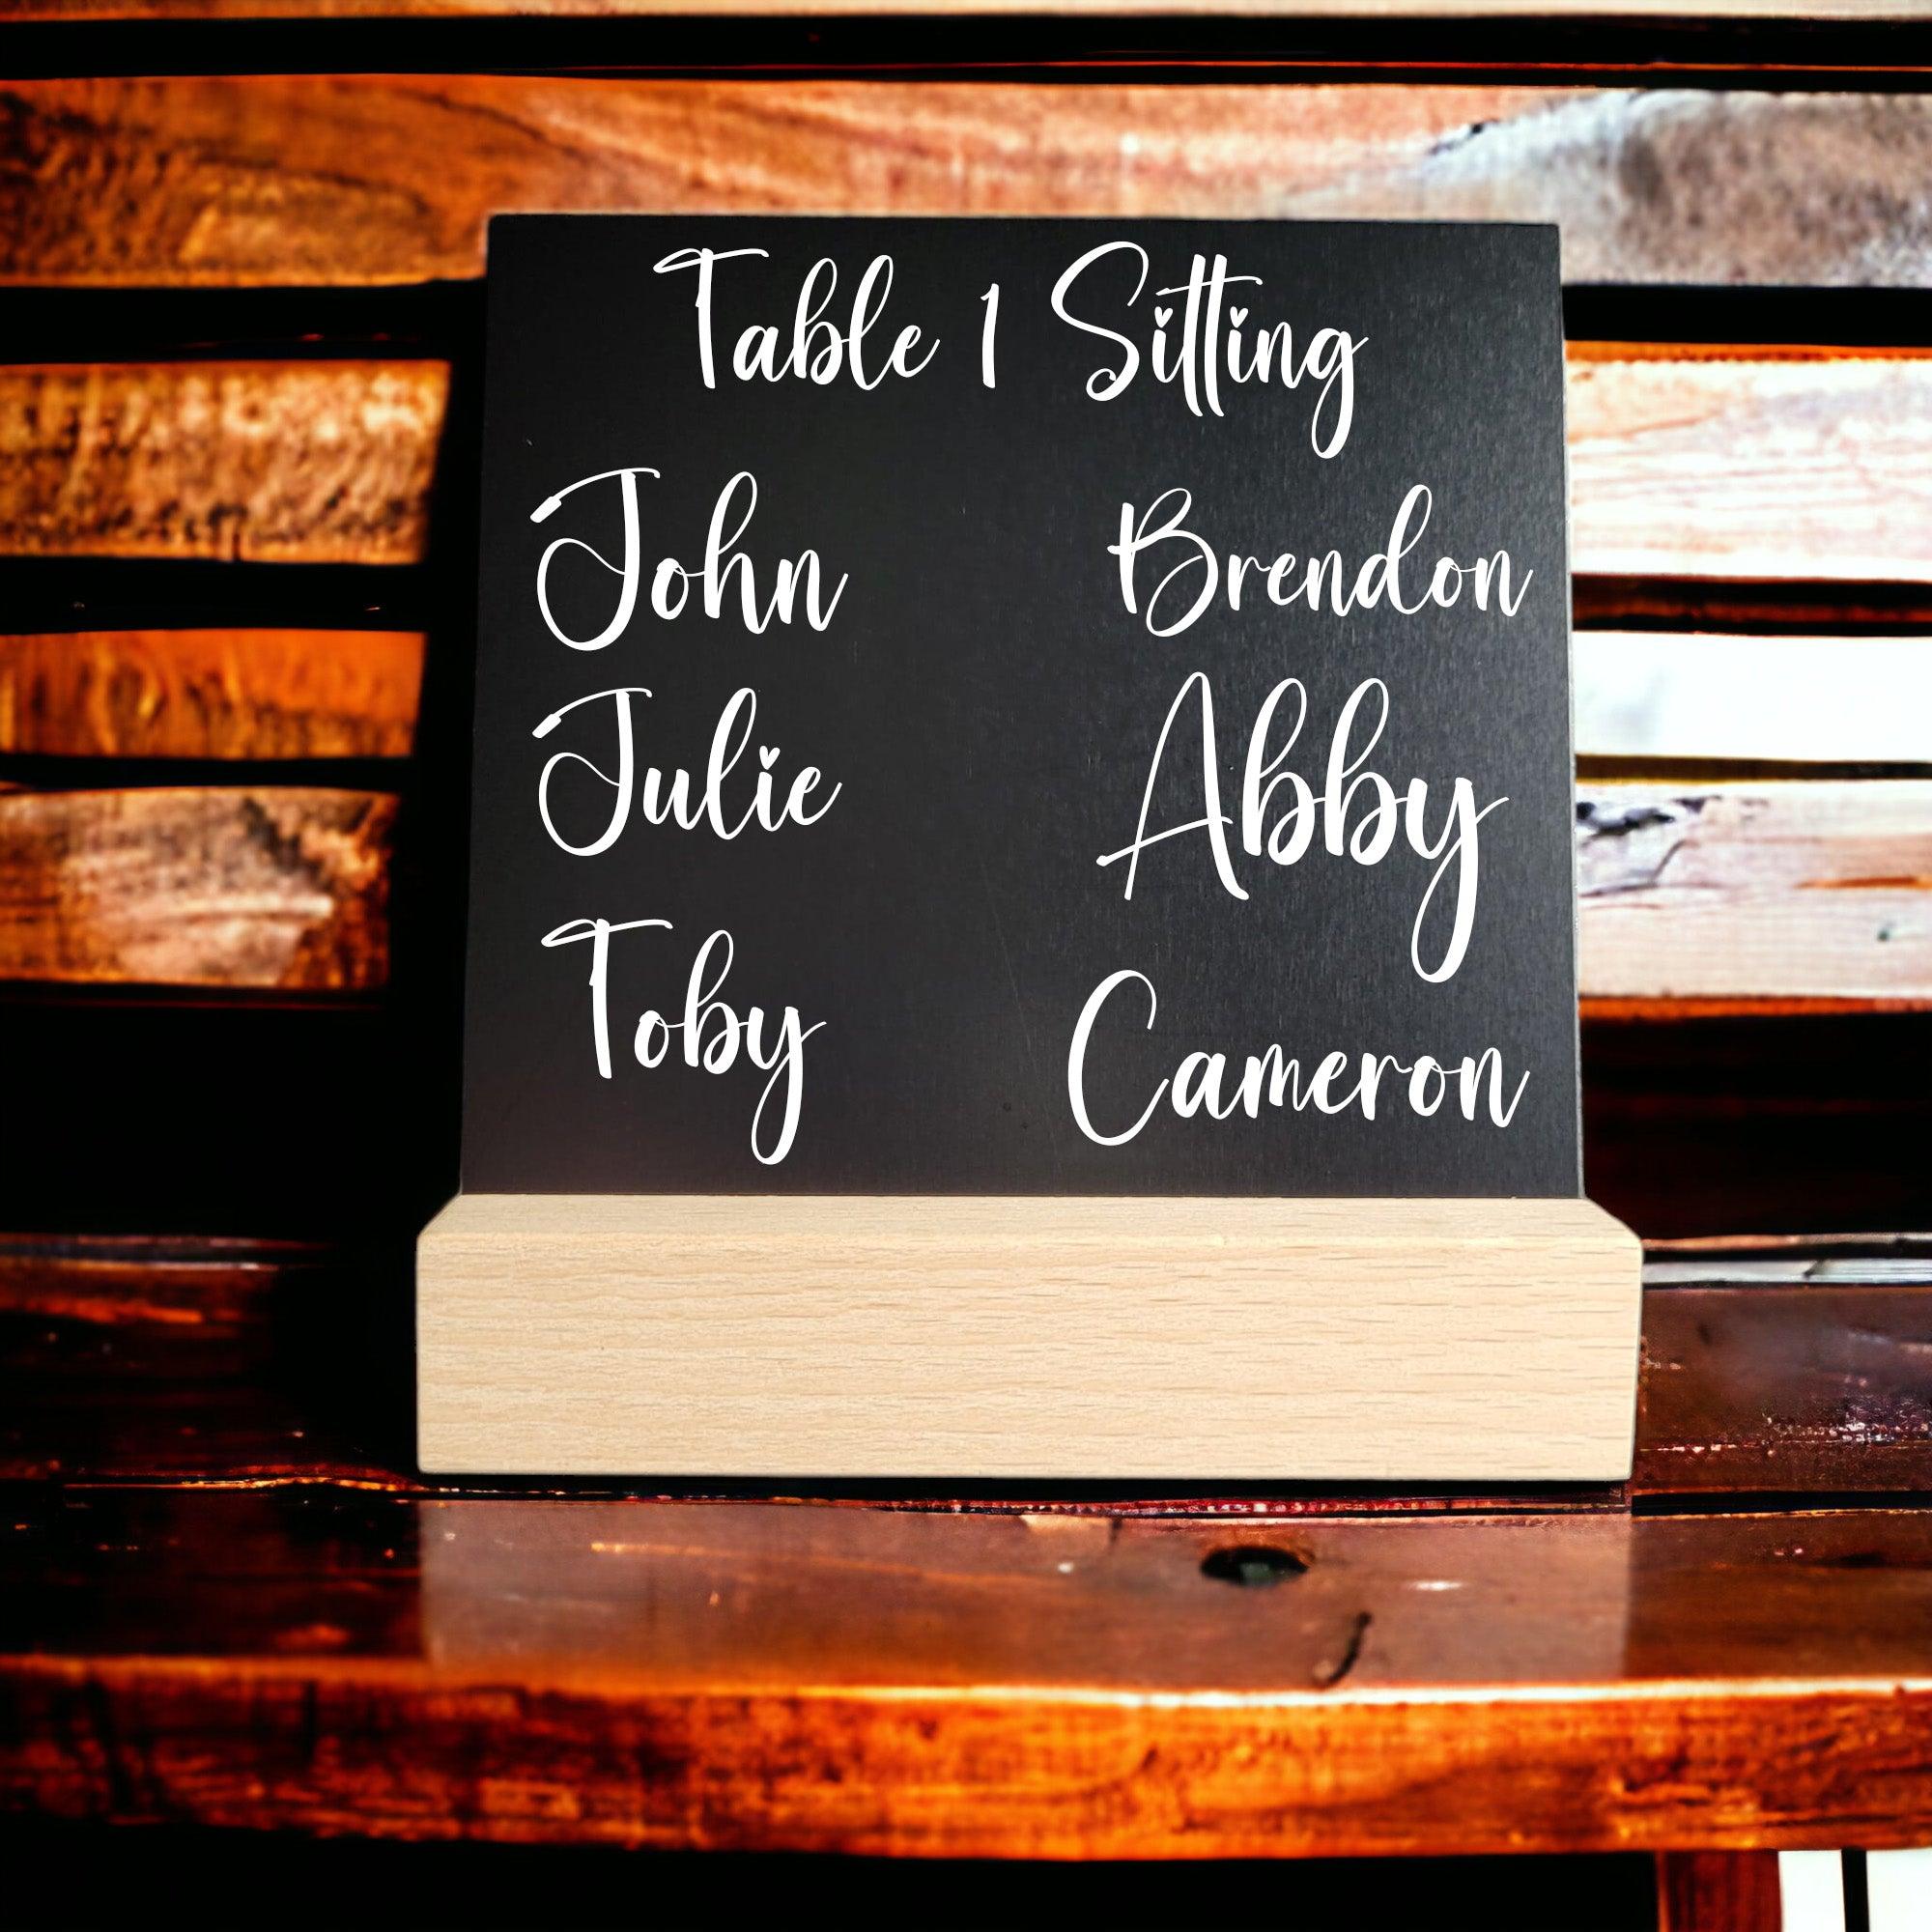 Table 1 Sitting
John Brendon
Julie Abby
Toby Cameron